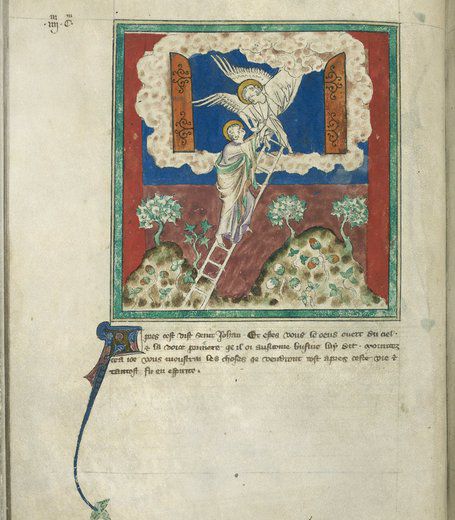 Apres cest vist seint Johan · Et estes vous le oeus overt du ciel ·
& la voiz primere qe il oi ausicome busine luy dit · mountez
cea ioe vous moustrai les choses qe vendront tost apres ceste vie &
tantost fu en espirite ·